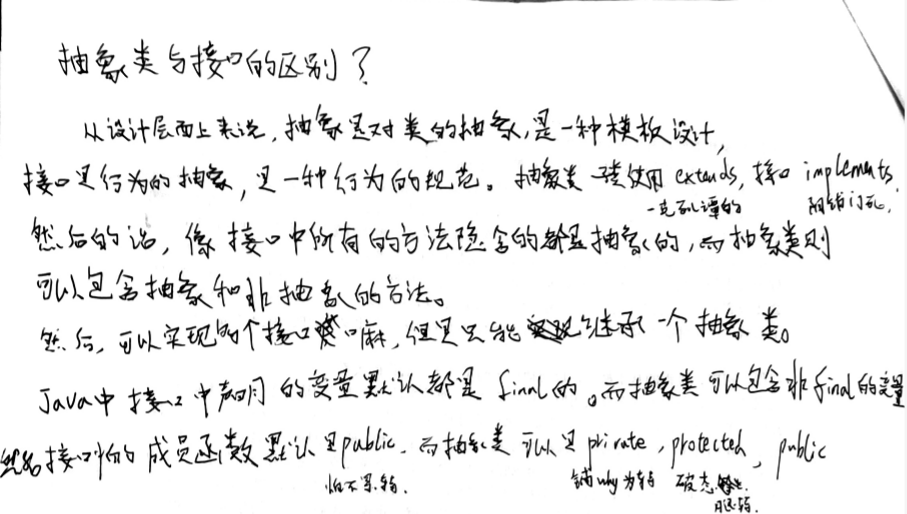 抽象类与接口的区别？
从设计层面上来说，抽象是对类的抽象，是一种模板设计，
接口是行为的抽象，是一种行为的规范。抽象类 使用 extends，接口 implements
一克死谭的 阴铺门死，
然后的话，像接口中所有的方法隐含的都是抽象的，而抽象类则
可以包含抽象和非抽象的方法。
然后，可以实现多个接口嘛，但是只能继承一个抽象类。
Java中接口中声明的变量默认都是 final的。而抽象类可以包含非final的变量
然后接口中的成员函数默认是public，而抽象类可以是private，protected，public